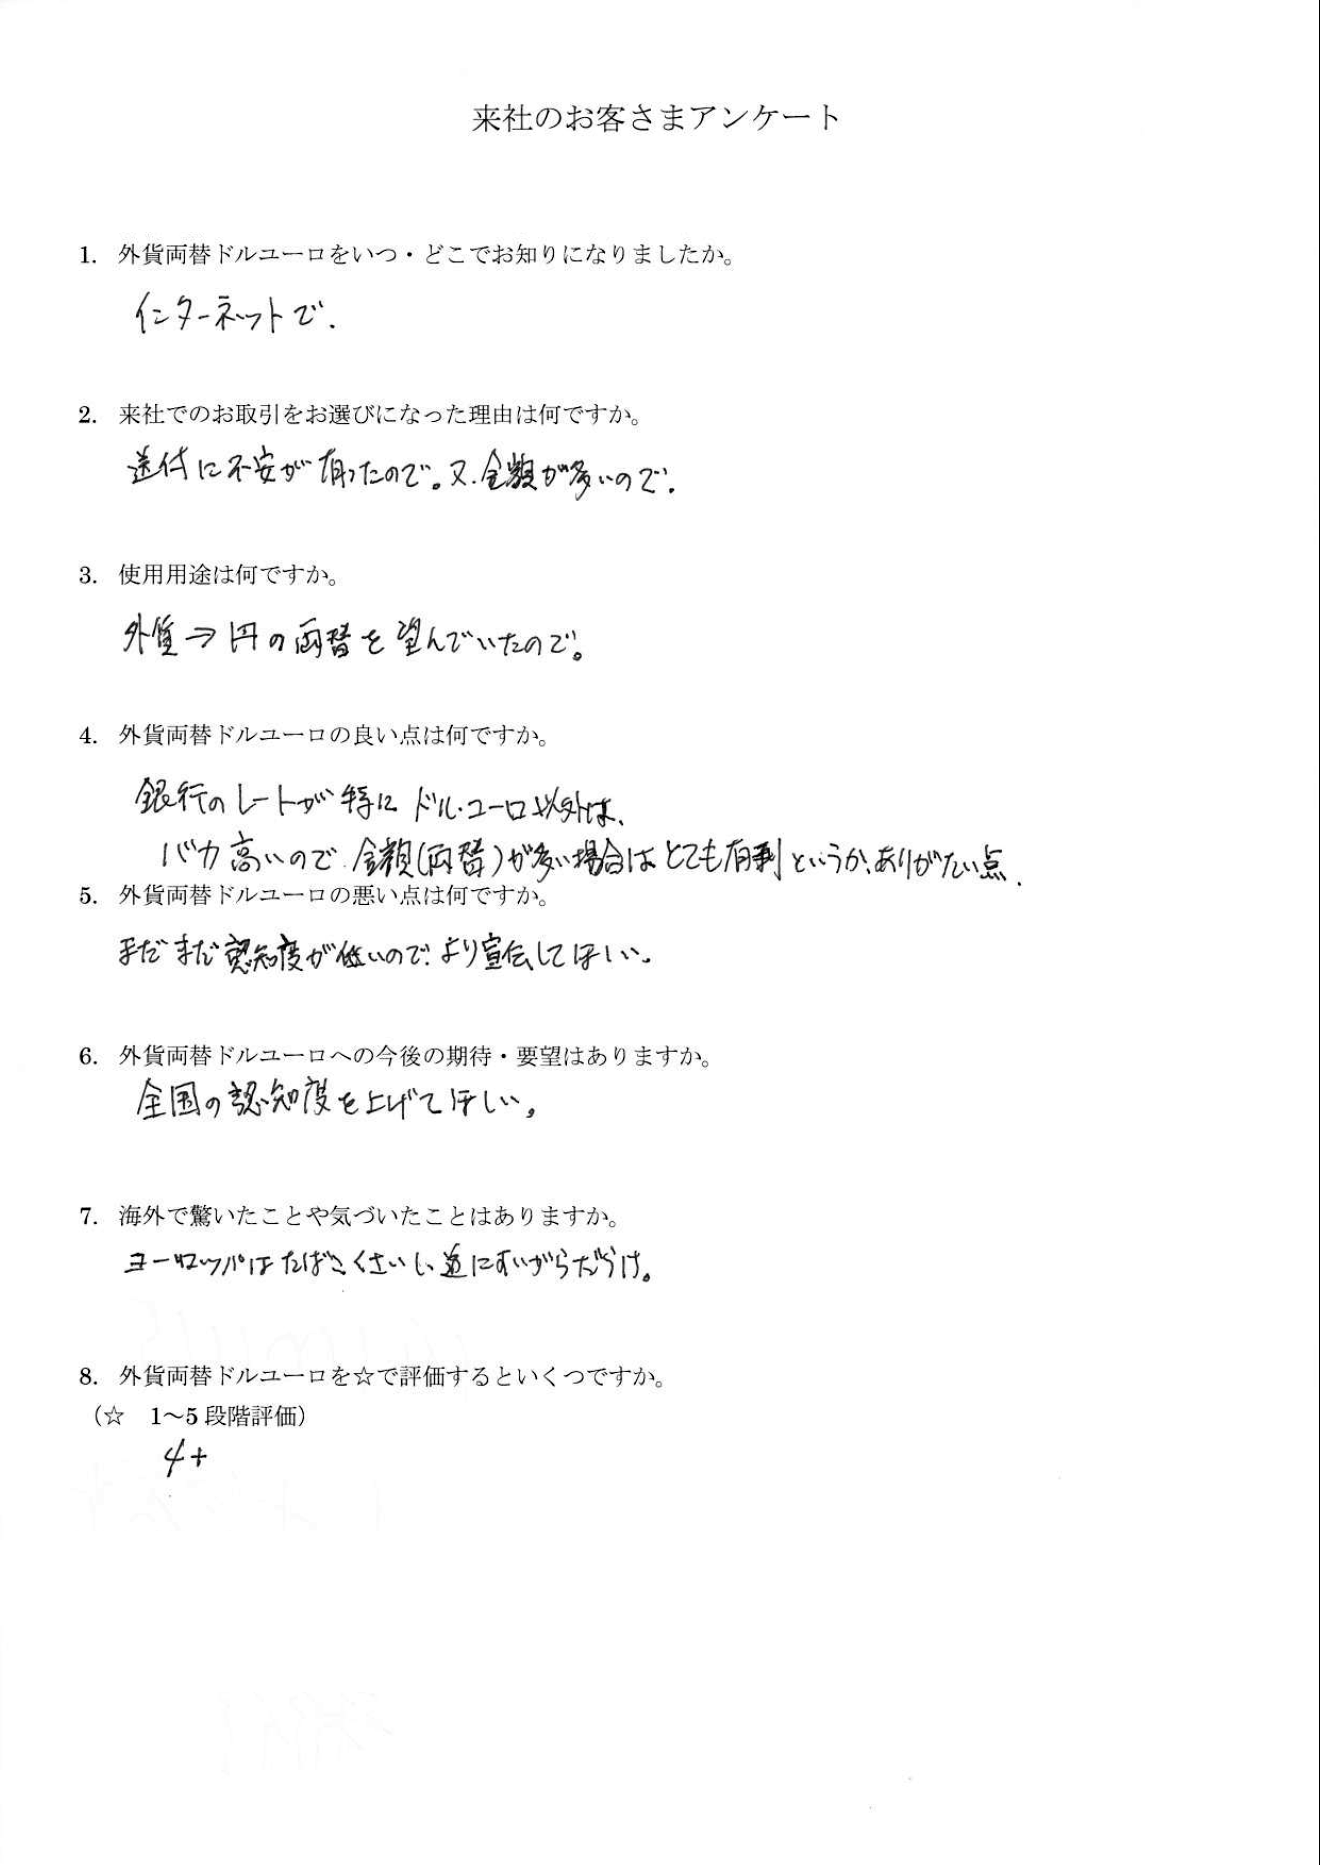 来社のお客さまアンケート
1. 外貨両替ドルユーロをいつ・どこでお知りになりましたか。
インターネットで.
2. 来社でのお取引をお選びになった理由は何ですか。
送付に不安が有ったので。又.金額が多いので.
3. 使用用途は何ですか。
外貨⇒円の両替を望んでいたので。
4. 外貨両替ドルユーロの良い点は何ですか。
銀行のレートが特にドル・ユーロ以外は、
バカ高いので.金額(両替)が多い場合はとても有利というか、ありがたい点.
5. 外貨両替ドルユーロの悪い点は何ですか。
まだまだ認知度が低いので.より宣伝してほしい。
6. 外貨両替ドルユーロへの今後の期待・要望はありますか。
全国の認知度を上げてほしい。
7. 海外で驚いたことや気づいたことはありますか。
ヨーロッパはたばこくさいし、道にすいがらだらけ。
8. 外貨両替ドルユーロを☆で評価するといくつですか。
(☆ 1～5 段階評価)
4+